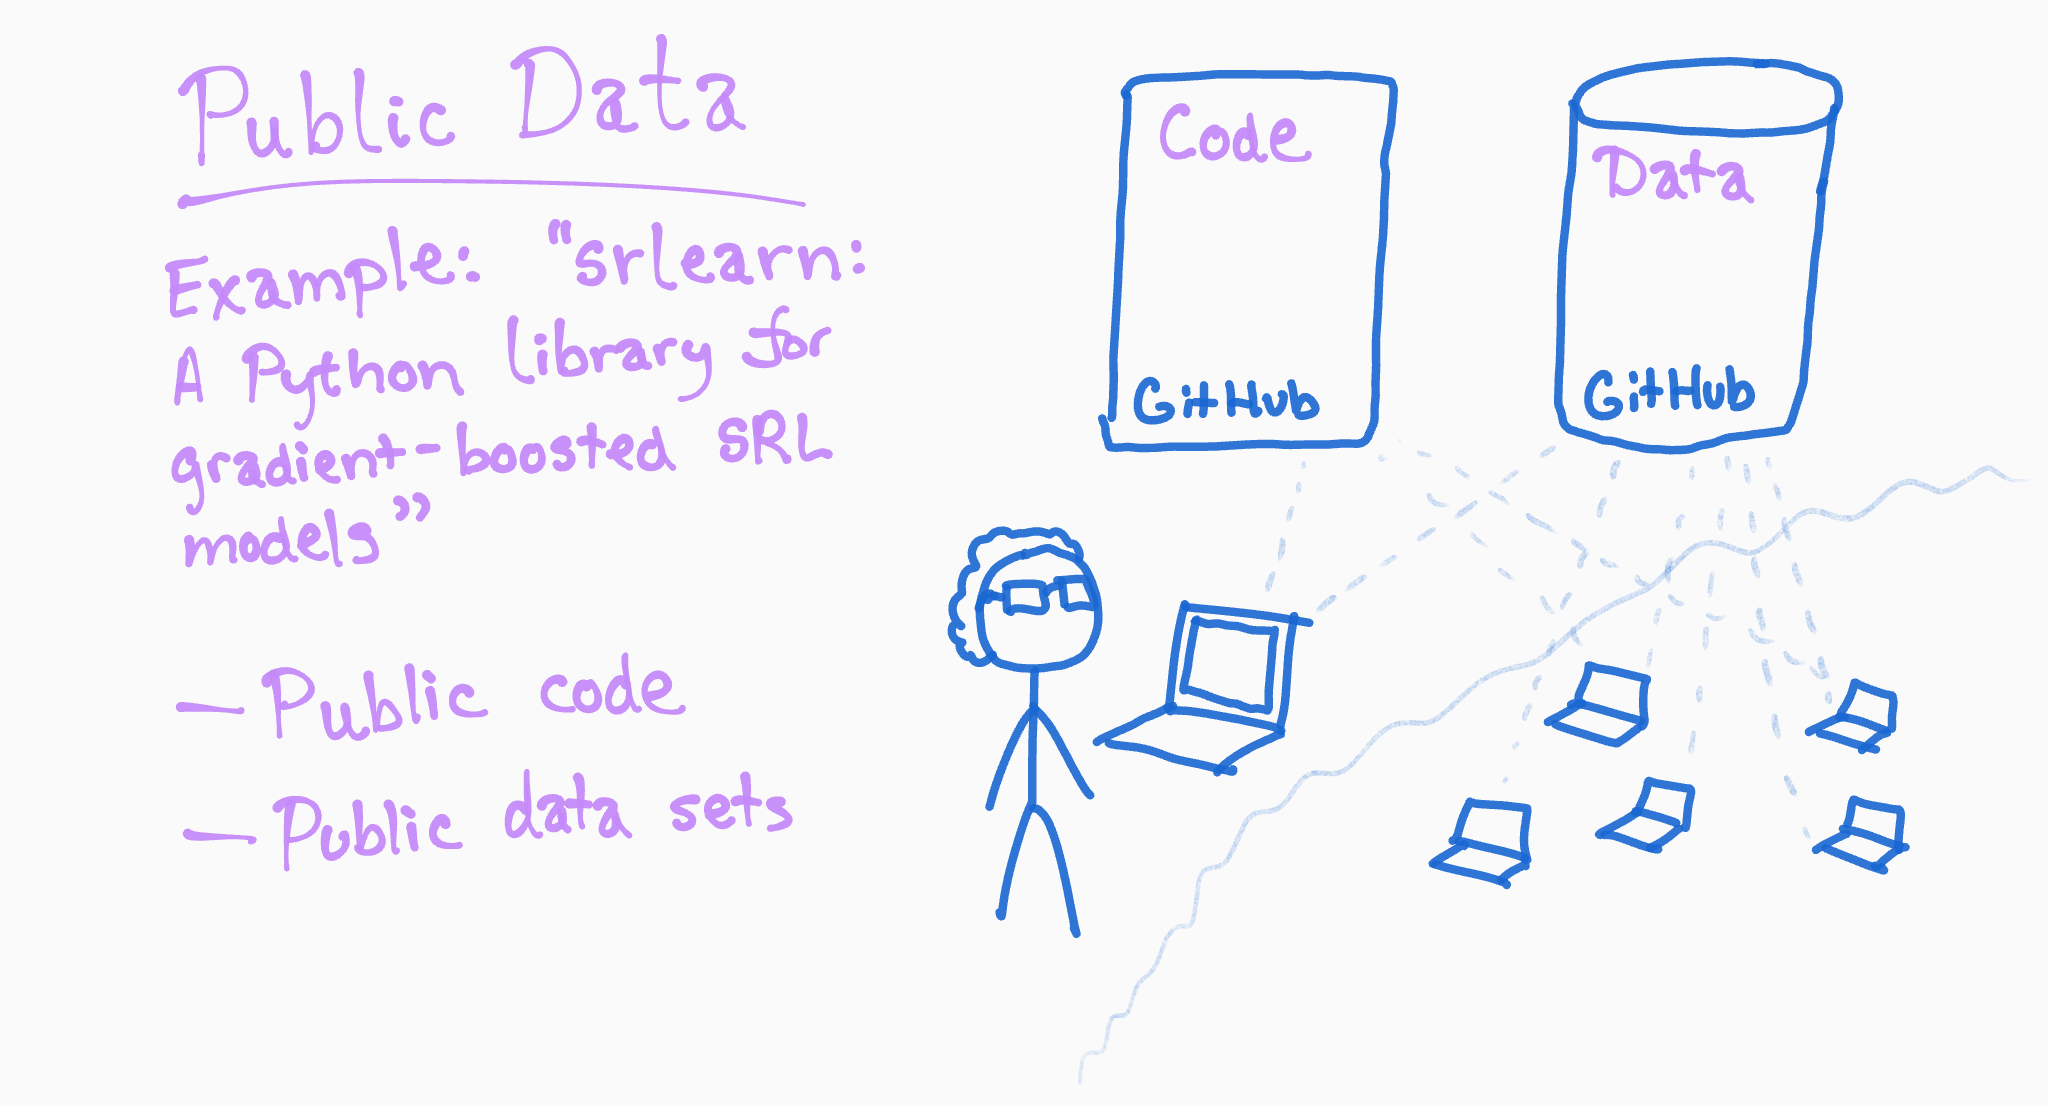 Public Data
Example: "srlearn:
A Python library for
gradient-boosted SRL
models"
— Public code
— Public data sets
Code
GitHub
Data
GitHub